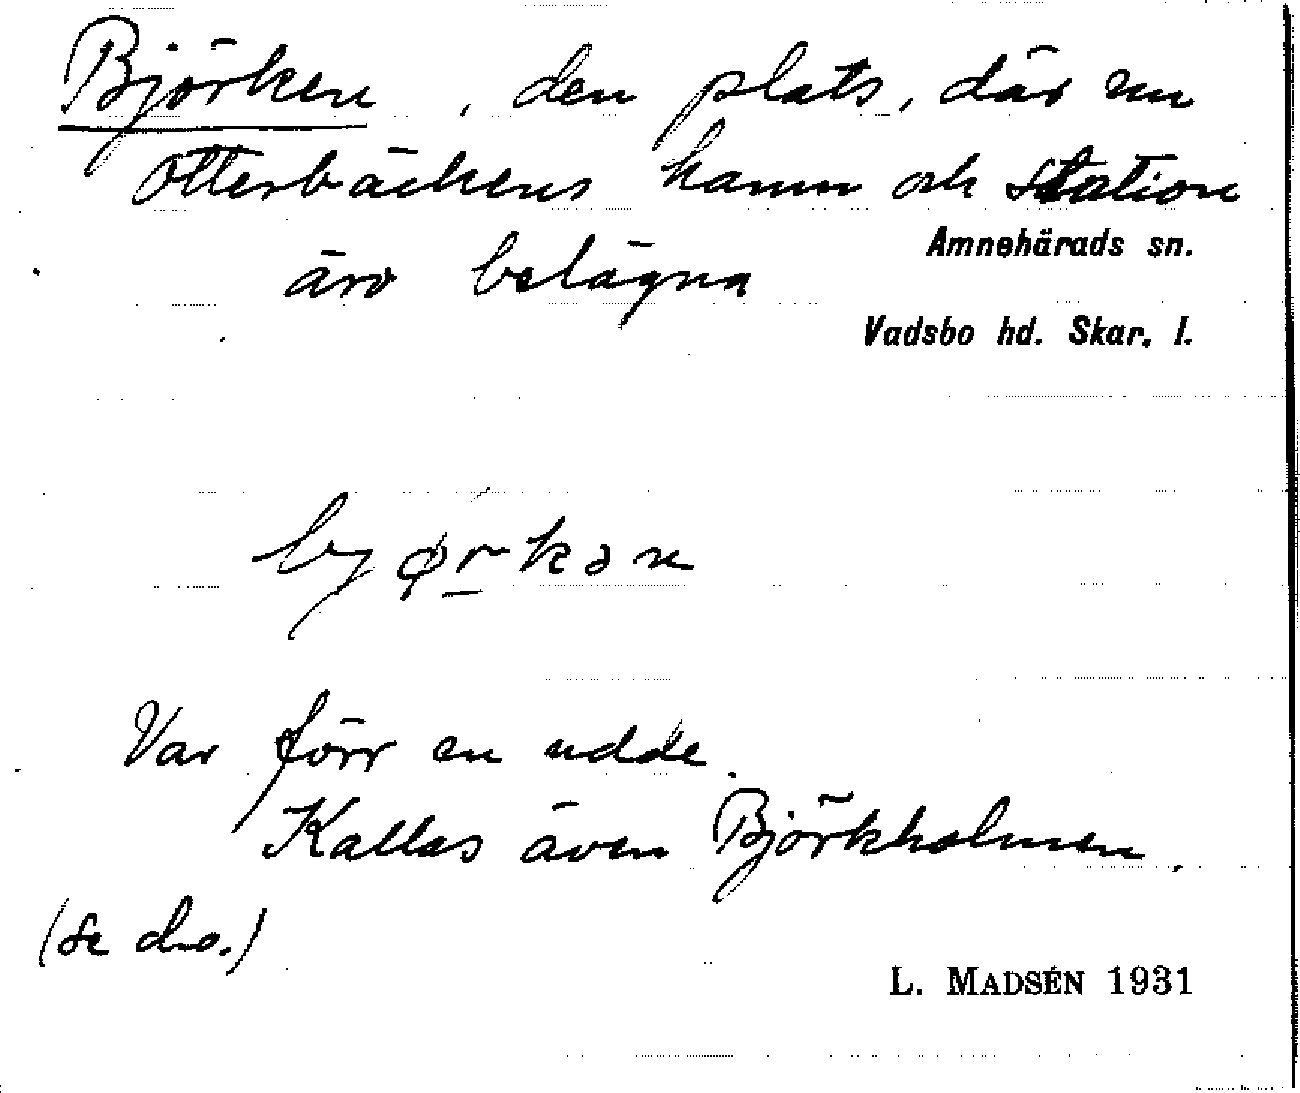 Björken, den plats, där nu
Otterbäckens hamn och station
äro belägna
Amnehärads sn.
Vadsbo hd. Skar. l.
bjørkən
Var förr en udde.
Kallas även Björkholmen.
(se d.o.)
L. MADSÉN 1931